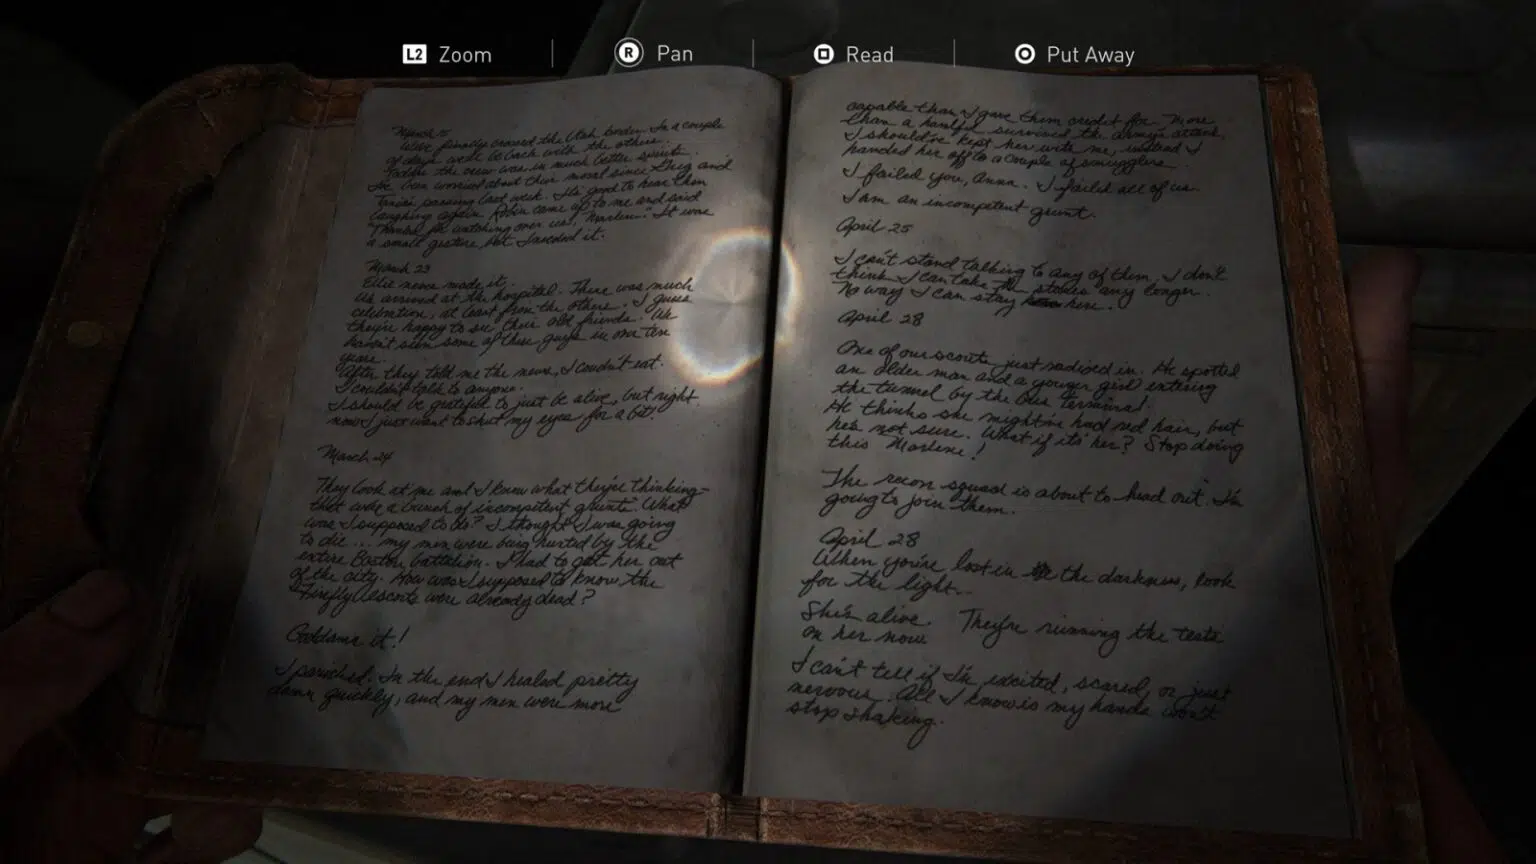 L2 Zoom
R Pan
Read
Put Away
March 5
We've finally crossed the Utah border. In a couple
of days we'll be back with the others.
Today the crew was in much better spirits.
I've been worried about their moral since Greg and
passing last week. It's good to hear them
laughing again. Robin came up to me and said
"Thanks for watching over us, Marlene." It was
a small gesture, but I needed it.
March 23
Ellie never made it.
We arrived at the hospital. There was much
celebration, at least from the others. I guess
they're happy to see their old friends. We
haven't seen some of these guys in over ten
years.
After they told me the news, I couldn't eat.
I couldn't talk to anyone.
I should be grateful to just be alive, but right
now I just want to shut my eyes for a bit!
March 24
They look at me and I know what they're thinking-
that we're a bunch of incompetent grunts. What
was I supposed to do? I thought I was going
to die... my men were being hunted by the
entire Boston battalion. I had to get her out
of the city. How was I supposed to know the
Firefly escorts were already dead?
Goddamn it!
I panicked. In the end I healed pretty
damn quickly, and my men were more
capable than I gave them credit for. More
than a handful survived the army's attack.
I should've kept her with me, instead I
handed her off to a couple of smugglers.
I failed you, Anna. I failed all of us.
I am an incompetent grunt.
April 25
I can't stand talking to any of them. I don't
think I can take the stares any longer.
No way I can stay here.
April 28
One of our scouts just radioed in. He spotted
an older man and a younger girl entering
the tunnel by the bus terminal.
He thinks she might've had red hair, but
he's not sure. What if it's her? Stop doing
this Marlene!
The recon squad is about to head out. I'm
going to join them.
April 28
When you're lost in the darkness, look
for the light...
She's alive. They're running the tests
on her now
I can't tell if I'm excited, scared, or just
nervous. All I know is my hands won't
stop shaking.